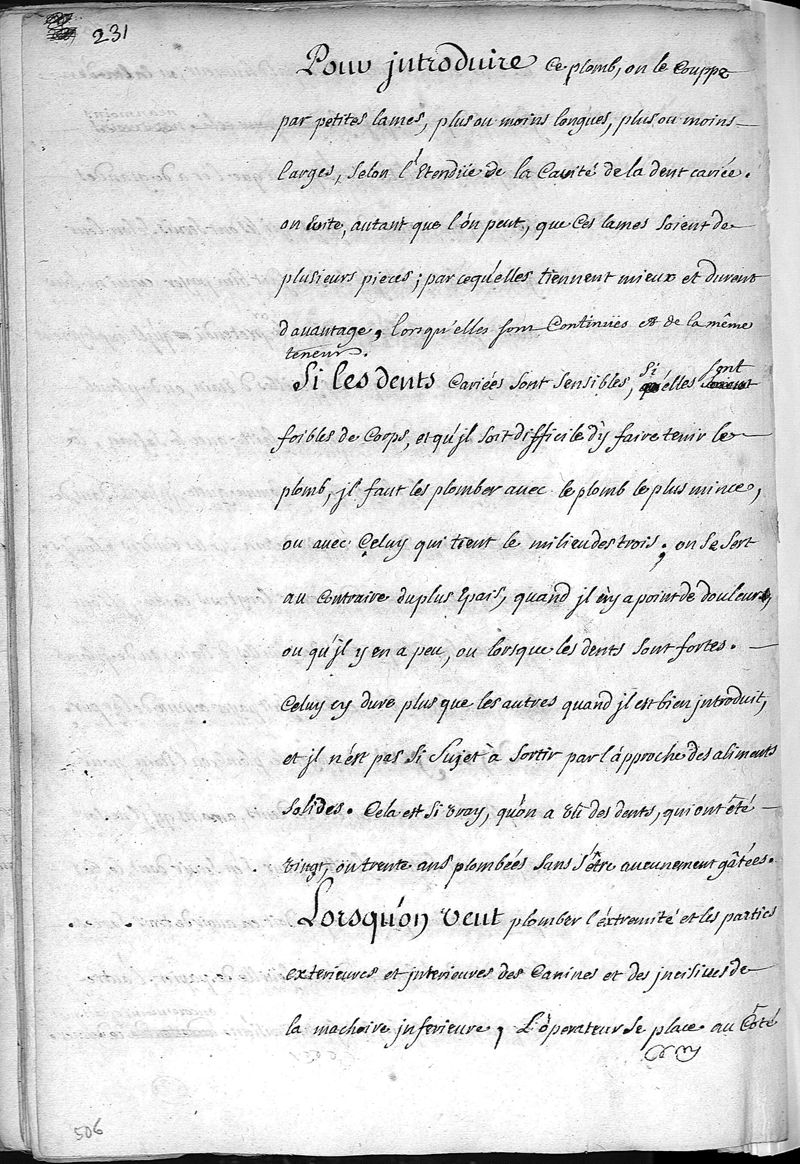 231
Pour introduire ce plomb, on le Couppe
par petites lames, plus ou moins longues, plus ou moins
larges, Selon l'Etendüe de la Cavité de la dent cariée.
on Evite, autant que l'on peut, que Ces lames Soient de
plusieurs pieces; parcequ'elles tiennent mieux et durent
davantage, lorsqu'elles sont Continües et de la même
teneur.
Si les dents Cariées Sont Sensibles, Si elles sont
foibles de Corps, et qu'jl Soit difficile d'y faire tenir le
plomb, jl faut les plomber avec le plomb le plus mince,
ou avec Celuy qui tient le milieu des trois; on Se Sert
au Contraire du plus Epais, quand jl n'y a point de douleur,
ou qu'jl y en a peu, ou lorsque les dents Sont fortes.
Celuy cy dure plus que les autres quand jl est bien introduit,
et jl n'est pas Si Sujet à Sortir par l'approche des aliments
Solides. Cela est Si vray, qu'on a vû des dents, qui ont été
vingt, ou trente ans plombées Sans s'être aucunement gâtées.
Lorsqu'on veut plomber l'éxtremité et les parties
exterieures et jnterieures des Canines et des jncisives de
la machoire jnferieure, L'operateur Se place au Côté
506